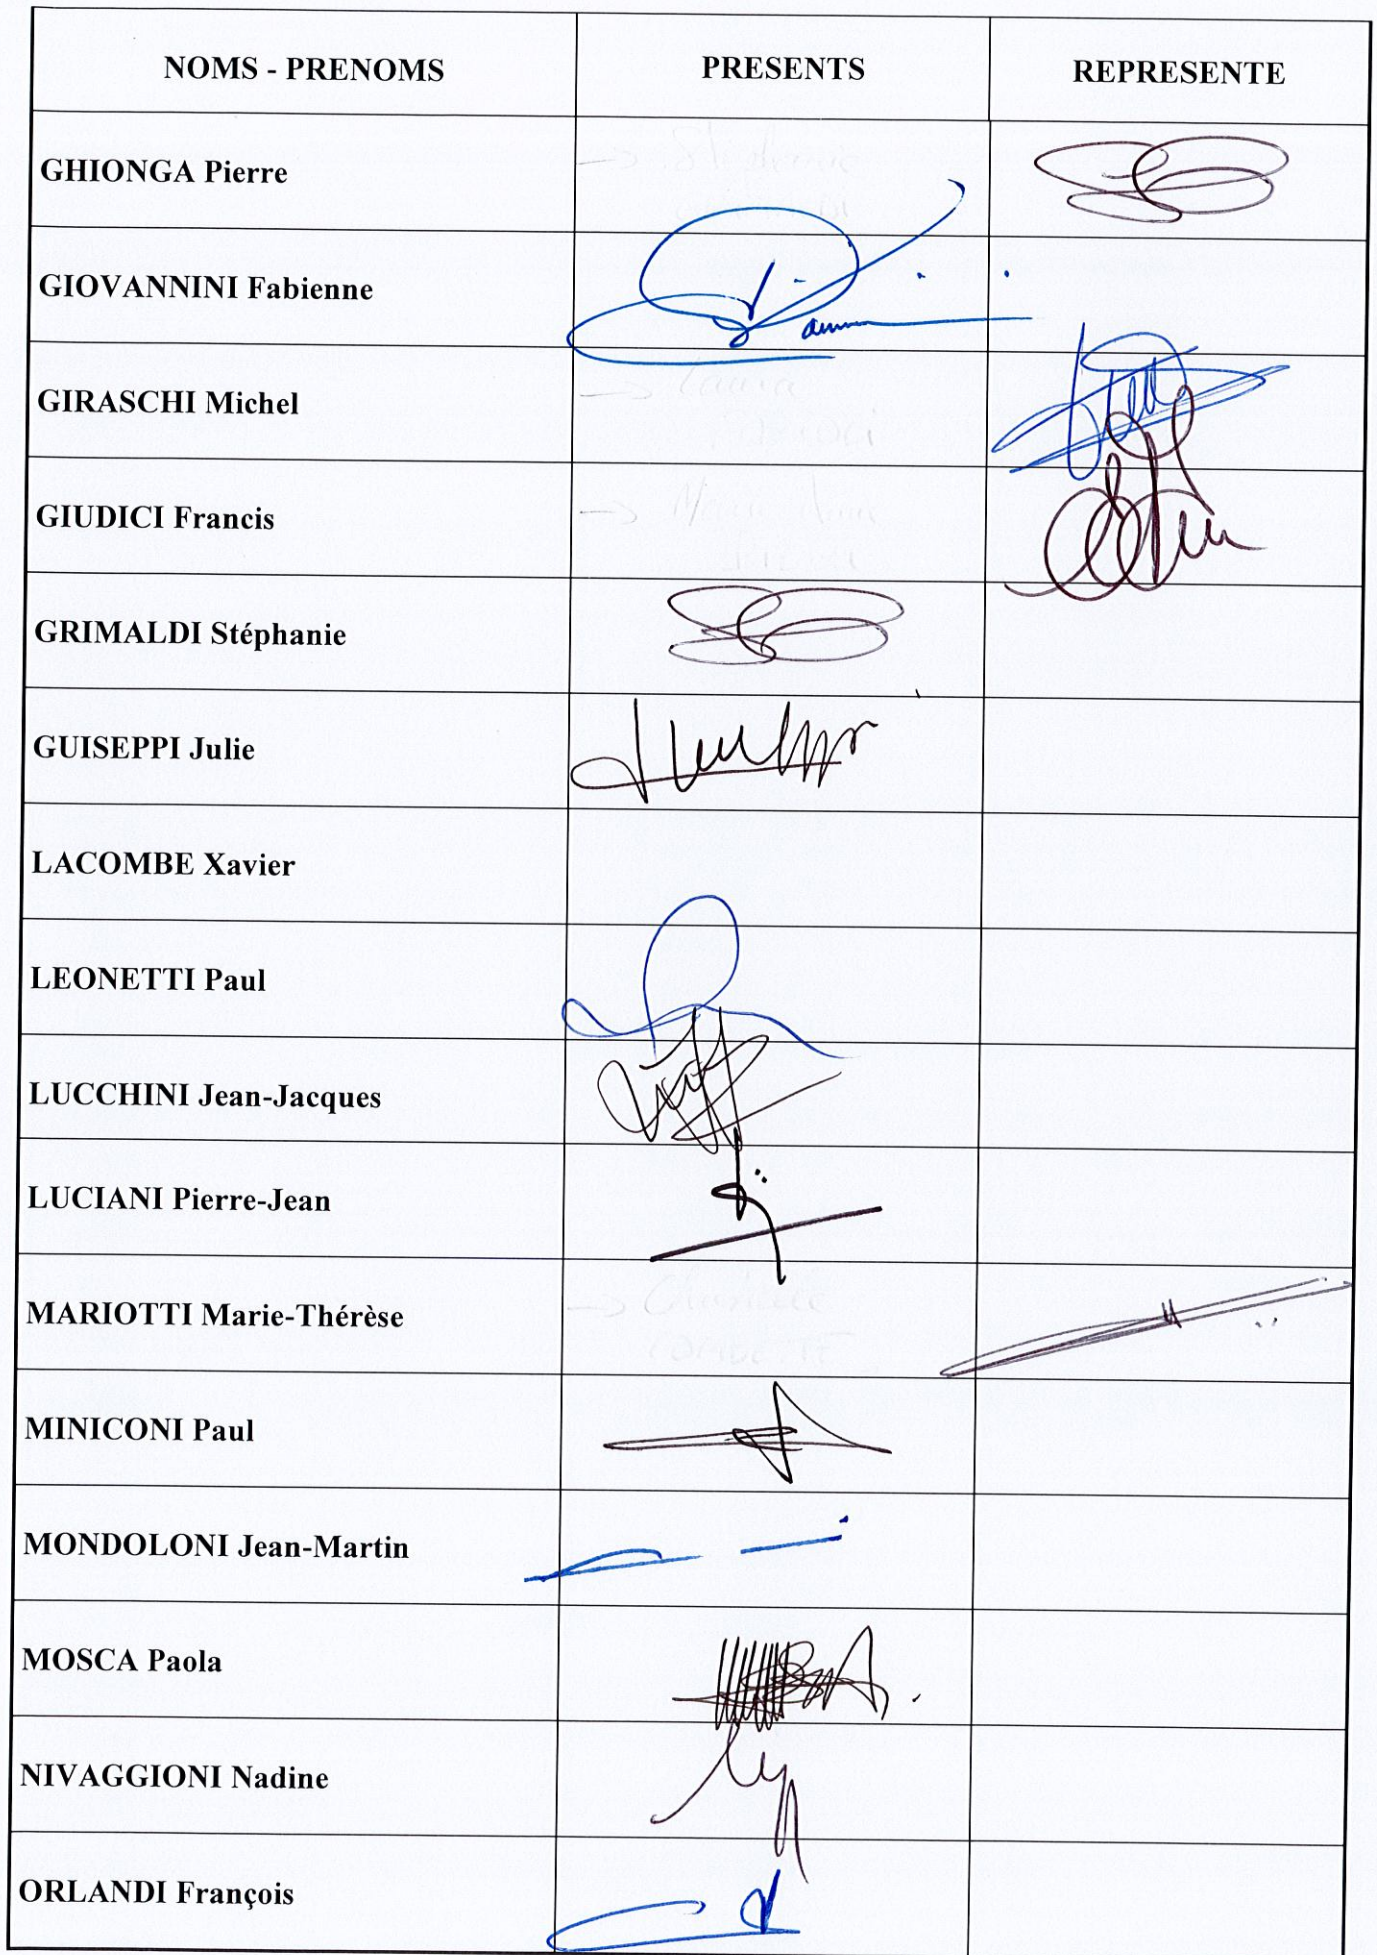 NOMS - PRENOMS PRESENTS REPRESENTE
GHIONGA Pierre
GIOVANNINI Fabienne
GIRASCHI Michel
GIUDICI Francis
GRIMALDI Stéphanie
GUISEPPI Julie
LACOMBE Xavier
LEONETTI Paul
LUCCHINI Jean-Jacques
LUCIANI Pierre-Jean
MARIOTTI Marie-Thérèse
MINICONI Paul
MONDOLONI Jean-Martin
MOSCA Paola
NIVAGGIONI Nadine
ORLANDI François